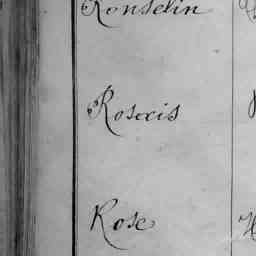 Ronselin
Roscis
Rose